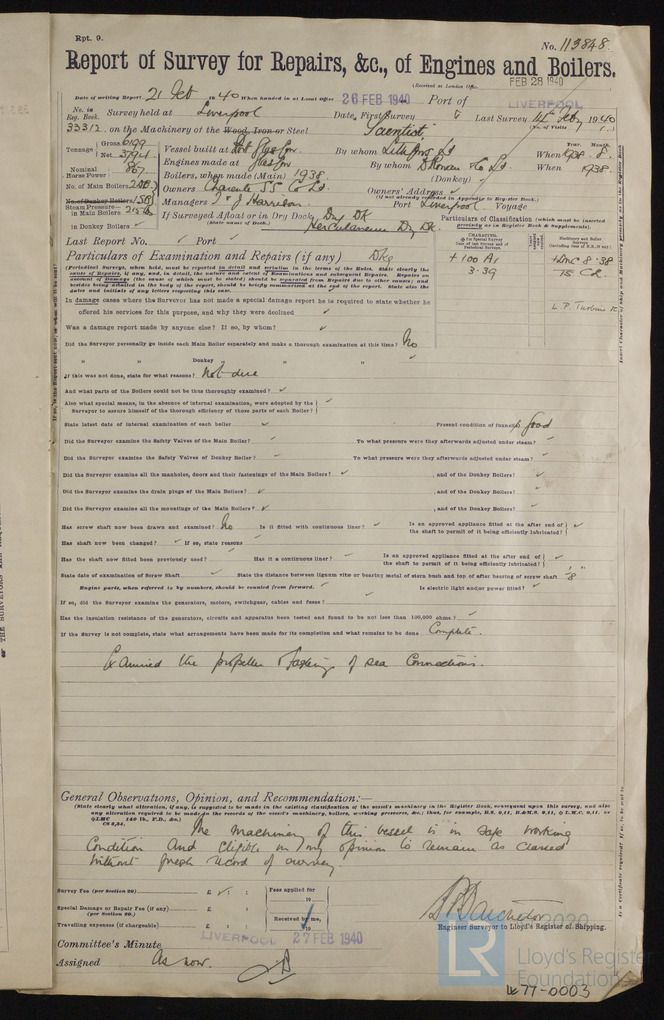 Rpt. 9.
No. 113848.
Report of Survey for Repairs, &c., of Engines and Boilers.
(Received at London Office
FEB 28 1940
Date of writing Report 21 Feb 1940 When handed in at Local Office 26 FEB 1940 Port of LIVERPOOL
No. in Reg. Book. Survey held at Liverpool Date, First Survey Last Survey 14th Feb 1940
(No. of Visits
33312 on the Machinery of the Wood, Iron or Steel Scientist
Tonnage Gross 6199 Net 3794
Vessel built at Port Glasgow By whom Lithgows Ld When 1938 . 8
Year. Month.
Engines made at Glasgow By whom D Rowan & Co Ld. When 1938.
Nominal Horse Power 867
Boilers, when made (Main) 1938 (Donkey) ✓
No. of Main Boilers 2
Owners Charente SS Co Ld Owners' Address
(If not already recorded in Appendix to Register Book.)
No. of Donkey Boilers
Managers T & J Harrison. Port Liverpool Voyage
Steam Pressure in Main Boilers
in Donkey Boilers ✓
If Surveyed Afloat or in Dry Dock Dry Dk
(State name of Dock.) Herculaneum Dry Dk.
Particulars of Classification (which must be inserted precisely as in Register Book & Supplements).
Last Report No. ✓ Port ✓
+ 100 A1
3.39
+ LMC 8.38
TS CL
Particulars of Examination and Repairs (if any) Dkg
(Periodical Surveys, when held, must be reported in detail and seriatim in the terms of the Rules. State clearly the
In damage cases where the Surveyor has not made a special damage report he is required to state whether he
offered his services for this purpose, and why they were declined ✓
Was a damage report made by anyone else? If so, by whom? ✓
Did the Surveyor personally go inside each Main Boiler separately and make a thorough examination at this time? No
" " Donkey " " " ✓
If this was not done, state for what reasons? Not due
And what parts of the Boilers could not be thoroughly examined? ✓
Also what special means, in the absence of internal examination, were adopted by the
Surveyor to assure himself of the thorough efficiency of those parts of each Boiler? ✓
State latest date of internal examination of each boiler ✓ Present condition of funnel good
Did the Surveyor examine the Safety Valves of the Main Boiler? ✓ To what pressure were they afterwards adjusted under steam? ✓
Did the Surveyor examine the Safety Valves of Donkey Boiler? ✓ To what pressure were they afterwards adjusted under steam? ✓
Did the Surveyor examine all the manholes, doors and their fastenings of the Main Boilers? ✓, and of the Donkey Boilers? ✓
Did the Surveyor examine the drain plugs of the Main Boilers? ✓, and of the Donkey Boilers? ✓
Did the Surveyor examine all the mountings of the Main Boilers? ✓, and of the Donkey Boilers? ✓
Has screw shaft now been drawn and examined? No Is it fitted with continuous liner? ✓ Is an approved appliance fitted at the after end of
the shaft to permit of it being efficiently lubricated? ✓
Has shaft now been changed? ✓ If so, state reasons ✓
Has the shaft now fitted been previously used? ✓ Has it a continuous liner? ✓ Is an approved appliance fitted at the after end of
the shaft to permit of it being efficiently lubricated? ✓
State date of examination of Screw Shaft ✓ State the distance between lignum vitæ or bearing metal of stern bush and top of after bearing of screw shaft
Engine parts, when referred to by numbers, should be counted from forward. ✓ Is electric light and/or power fitted? ✓
If so, did the Surveyor examine the generators, motors, switchgear, cables and fuses? ✓
Has the insulation resistance of the generators, circuits and apparatus been tested and found to be not less than 100,000 ohms? ✓
If the Survey is not complete, state what arrangements have been made for its completion and what remains to be done Complete.
Examined the propeller & fastenings of sea connections.
General Observations, Opinion, and Recommendation:—
(State clearly what alteration, if any, is suggested to be made in the existing classification of the vessel's machinery in the Register Book, consequent upon this survey, and also
The machinery of this vessel is in safe working
condition and eligible in my opinion to remain as classed
without fresh record of survey.
Survey Fee (per Section 29) £ Fees applied for
Special Damage or Repair Fee (if any) £
(per Section 29.)
Received by me,
Travelling expenses (if chargeable) £
Engineer Surveyor to Lloyd's Register of Shipping.
Committee's Minute LIVERPOOL 27 FEB 1940
Assigned As now.
2020
LR
Lloyd's Register
Foundation
77-0003